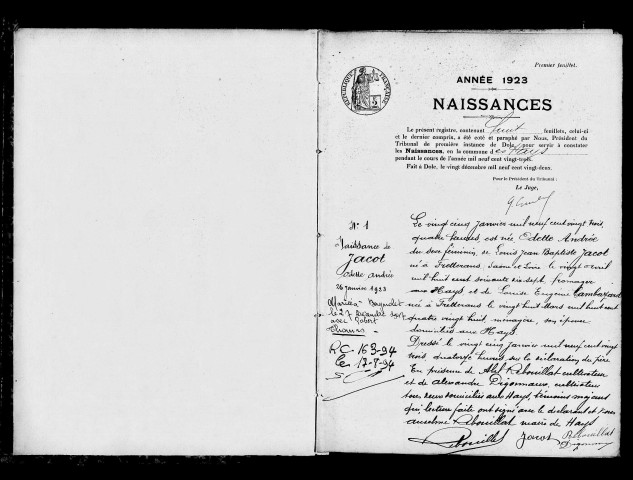 Premier feuillet.
ANNÉE 1923
NAISSANCES
RÉPUBLIQUE FRANÇAISE
Le présent registre, contenant huit feuillets, celui-ci
et le dernier compris, a été coté et paraphé par Nous, Président du
Tribunal de première instance de Dole, pour servir à constater
les Naissances, en la commune des Hays
pendant le cours de l'année mil neuf cent vingt-trois.
Fait à Dole, le vingt décembre mil neuf cent vingt-deux.
Pour le Président du Tribunal :
Le Juge,
N° 1
Naissance de
Jacot
Odette Andrée
26 janvier 1923
le 27
avec Robert
Thomas
R.C. 163-94
Le 17-8-94
Le vingt cinq janvier mil neuf cent vingt trois,
quatre heures, est née, Odette Andrée
du sexe féminin, de Louis Jean Baptiste Jacot
né à Fretterans, Saône et Loire le vingt
mil huit cent soixante dix sept, fromager
aux Hays et de Louise Eugénie
née à Fretterans le vingt huit Mars mil huit cent
quatre vingt huit, ménagère, son épouse
domiciliés aux Hays
Dressé le vingt cinq janvier mil neuf cent vingt
trois, quatorze heures, sur la déclaration du père
En présence de Abel Rebouillat cultivateur
et de Alexandre cultivateur
tous deux domiciliés aux Hays, témoins majeurs
qui, lecture faite ont signé avec le déclarant et nous
Anselme Rebouillat maire de Hays
Rebouillat Jacot Rebouillat